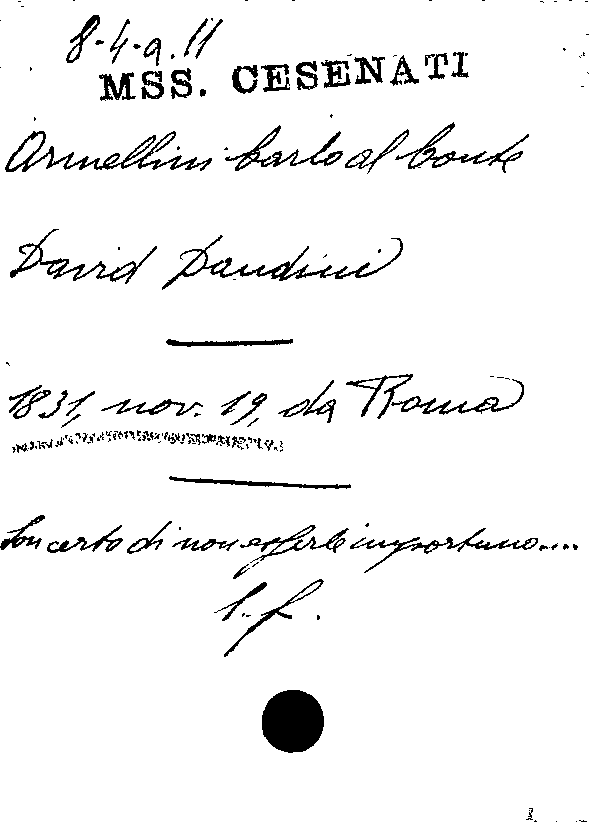 8-4-a.11
MSS. CESENATI
Armellini Carlo al Conte
David Dandini
1831, nov. 19, da Roma
Son certo di non esserle importuno....
l. f.